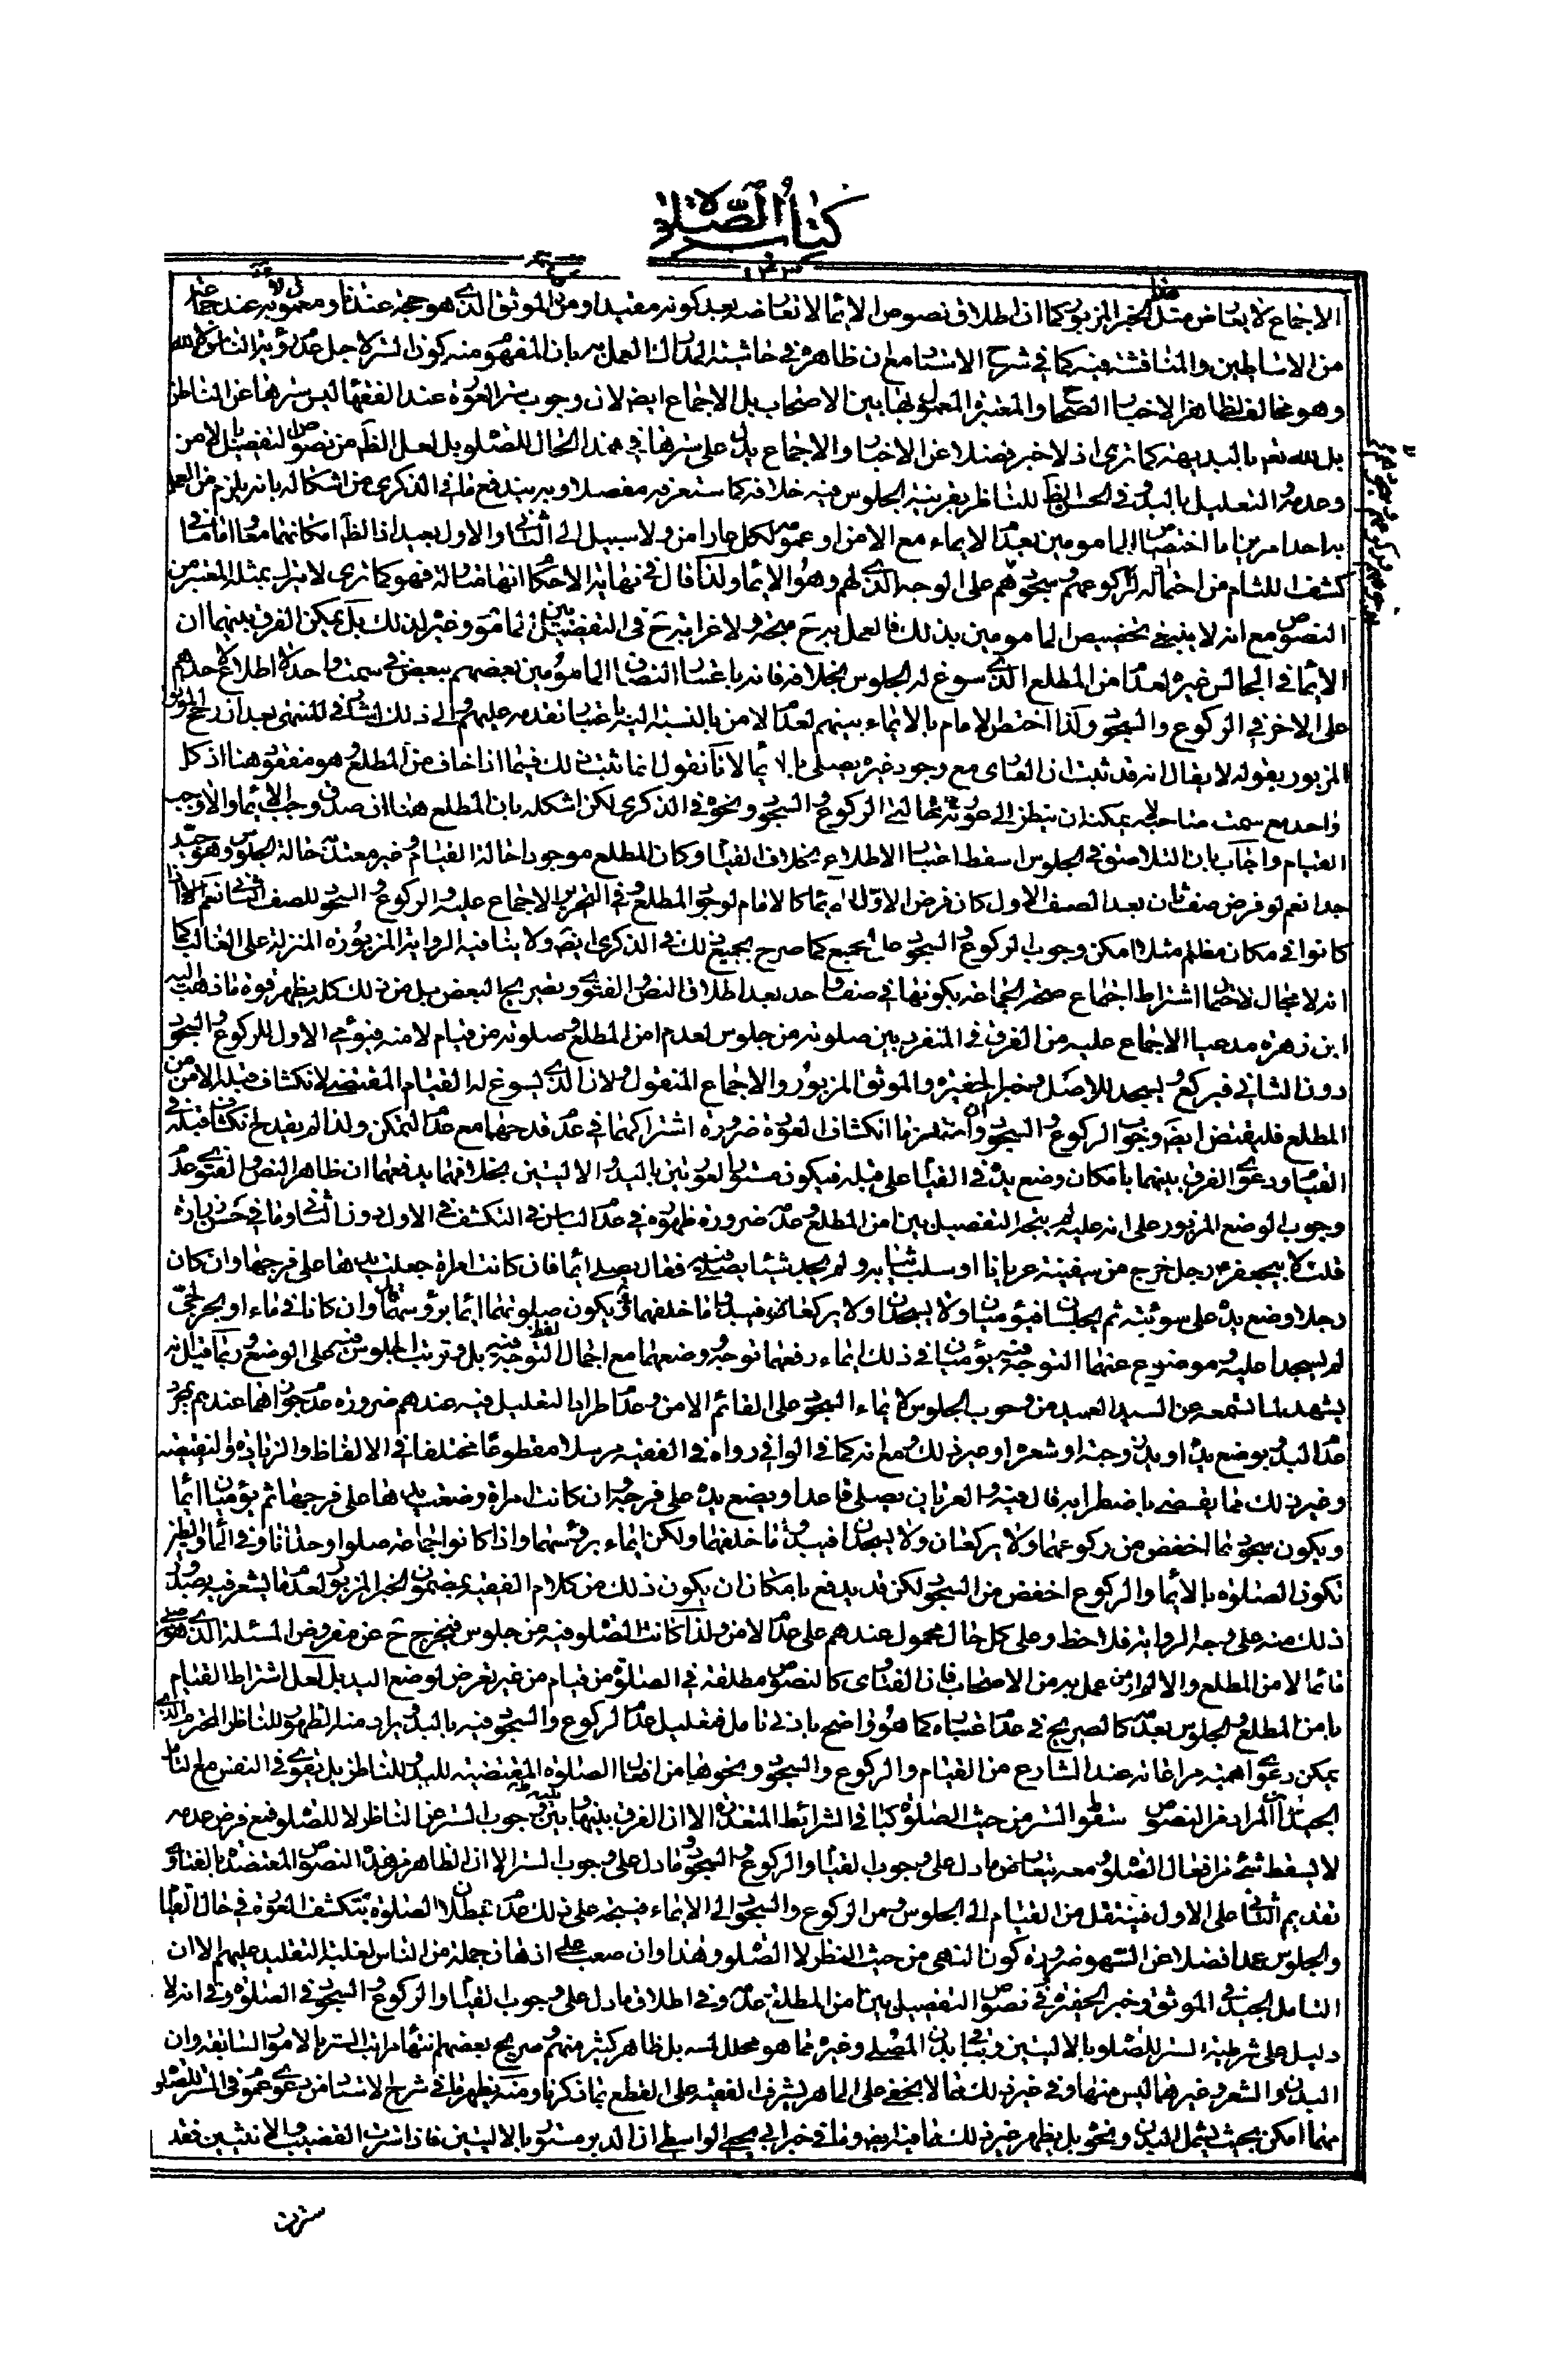 كتاب الصلاة
الاجماع لا يعارض مثل هذا الخبر المزبور كما ان اطلاق نصوص الايماء لا تعارضه بعد كونه مقيدا ومن الموثق الذى هو حجة عندنا ومعمول به عند جماعة
من الاساطين والمناقشة فيه كما فى شرح الاستاد مع ان ظاهره فى حاشية المدارك العمل به بان المفهوم منه كون الستر لاجل عدم رؤية الناس لا لله
وهو مخالف لظاهر الاخبار الصحاح والمعتبرة المعمول بها بين الاصحاب بل الاجماع ايضا لان وجوب ستر العورة عند الفقهاء ليس سترها عن الناظر
بل لله نعم بالبديهة كما ترى اذ لا خبر فضلا عن الاخبار والاجماع يدل على سترها فى هذا الحال للصلوة بل لعل الظاهر من نصوص التفصيل بالامن
وعدمه والتعليل بالبدو فى الحسن الظاهر للناظر بقرينة الجلوس فيه خلافه كما ستعرفه مفصلا وبه يندفع ما فى الذكرى من اشكاله بانه يلزم من العمل
به احد امرين اما اختصاص المامومين بعدم الايماء مع الامن او عمومه لكل عار امن ولا سبيل الى الثانى والاول بعيد اذ الظاهر امكانهما معا اما ما فى
كشف اللثام من احتماله لركوعهم وسجودهم على الوجه الذى لهم وهو الايماء ولذا قال فى نهاية الاحكام انها متاولة فهو كما ترى لا يترك بمثله المعتبر من
النصوص مع انه لا ينبغى تخصيص المامومين بذلك فالعمل به ح متجه ولا غرابة ح فى التفصيل بين الامام والمامومين وغير ذلك بل يمكن الفرق بينهما ان
الايماء فى الجالس غيره لعدم امن المطلع الذى سوغ له الجلوس بخلافه فانه باعتبار التصاق المامومين بعضهم ببعض فى سمت واحد لا اطلاع لاحدهم
على الاخر فى الركوع والسجود ولذا اختص الامام بالايماء بينهم لعدم الامن بالنسبة اليه باعتبار تقدمه عليهم والى ذلك اشار فى المنتهى بعد ان رجح الموثق
المزبور بقوله لا يقال انه قد ثبت ان العارى مع وجود غيره يصلى بالايماء لانا نقول انما ثبت ذلك فيما اذا خاف من المطلع وهو مفقود هنا اذ كل
واحد مع سمت صاحبه لا يمكنه ان ينظر الى عورته حالتى الركوع والسجود ونحوه فى الذكرى لكن اشكله بان المطلع هنا ان صدق وجب الايماء والا وجب
القيام واجاب بان التلاصق فى الجلوس اسقط اعتبار الاطلاع بخلاف القيام وكان المطلع موجودا حالة القيام وغير معتد به حالة الجلوس وهو جيد
جدا نعم لو فرض صف ثان بعد الصف الاول كان فرض الاول الايماء كالامام لوجود المطلع وفى التحرير الاجماع عليه والركوع والسجود للصف الثانى نعم لو
كانوا فى مكان مظلم مثلا امكن وجوب الركوع والسجود على الجميع كما صرح بجميع ذلك فى الذكرى ايضا ولا ينافيه الرواية المزبورة المنزلة على الغالب كما
انه لا مجال لاحتمال اشتراط اجتماع صفهم الجماعة بكونها فى صف واحد بعد اطلاق النص والفتوى وتصريح البعض بل من ذلك كله يظهر قوة ما ذهب اليه
ابن زهرة مدعيا الاجماع عليه من الفرق فى المنفرد بين صلوته من جلوس لعدم امن المطلع وصلوته من قيام لامنه فيومى فى الاول للركوع والسجود
دون الثانى فيركع ويسجد للاصل وخبر الحفيرة والموثق المزبور والاجماع المنقول ولان الذى يسوغ له القيام المقتضى لانكشاف قبله الامن من
المطلع فليقتض ايضا وجوب الركوع والسجود وان استلزما انكشاف العورة ضرورة اشتراكهما فى عدم قدحهما مع عدم التمكن ولذا لم يقدح انكشاف قبله فى
القيام ودعوى الفرق بينهما بامكان وضع يده فى القيام على قبله فيكون مستور العورتين باليد والاليتين بخلافهما يدفعها ان ظاهر النص والفتوى عدم
وجوب الوضع المزبور على انه عليه لم يتجه التفصيل بين امن المطلع وعدمه ضرورة ظهوره فى عدم الباس فى التكشف فى الاول دون الثانى وما فى حسن زرارة
قلت لابى جعفر ع رجل خرج من سفينة عريانا او سلب ثيابه ولم يجد شيئا يصلى فيه فقال يصلى ايماء فان كانت امراة جعلت يدها على فرجها وان كان
رجلا وضع يده على سوئته ثم يجلسان فيؤميان ولا يسجدان ولا يركعان فيبدو ما خلفهما تكون صلوتهما ايماء برؤسهما قال وان كانا فى ماء او بحر لجى
لم يسجدا عليه وموضوع عنهما التوجه فيه يؤميان فى ذلك ايماء رفعهما توجه ووضعهما مع اجمال لفظ التوجه فيه بل وترتيب الجلوس فيه على الوضع وربما قيل انه
يشهد لما تسمعه عن السيد العميد من وجوب الجلوس لايماء السجود على القائم الامن وعدم اطراد التعليل فيه عندهم ضرورة عدم جوازهما عندهم بمجرد
عدم البدو بوضع يده او يد زوجته او شعره او غير ذلك ومع انه كما فى الوافى رواه فى الفقيه مرسلا مقطوعا مختلفا فى الالفاظ والزيادة والنقيصة
وغير ذلك مما يقضى باضطرابه قال فيه والعريان يصلى قاعدا ويضع يده على فرجه وان كانت امراة وضعت يدها على فرجها ثم يؤميان ايماء
ويكون سجودهما اخفض من ركوعهما ولا يركعان ولا يسجدان فيبدو ما خلفهما ولكن ايماء برؤسهما واذا كانوا جماعة صلوا وحدانا وفى الماء والطين
تكون الصلوة بالايماء والركوع اخفض من السجود لكن قد يدفع بامكان ان يكون ذلك من كلام الفقيه بمضمون الخبر المزبور لعدم ما يشعر فيه بصدور
ذلك منه على وجه الرواية فلاحظ وعلى كل حال محمول عندهم على عدم الامن ولذا كانت الصلوة فيه من جلوس فيخرج ح عن مفروض المسئلة الذى هو من صلى
قائما لامن المطلع والا لم ار من عمل به من الاصحاب فان الفتاوى كالنصوص مطلقة فى الصلوة من قيام من غير تعرض لوضع اليد بل لعل اشتراط القيام
بامن المطلع والجلوس بعدمه كالصريح فى عدم اعتباره كما هو واضح بادنى تامل فتعليل عدم الركوع والسجود فيه بالبدو يراد منه الظهور للناظر المحترم الذى
يمكن دعوى اهمية مراعاته عند الشارع من القيام والركوع والسجود ونحوها من افعال الصلوة المقتضية للبدو للناظر بل يقوى فى النفس مع التامل
الجيد ان المراد من النصوص سقوط الستر من حيث الصلوة كباقى الشرائط المتعذرة الا ان الفرق بينها وبينه وجوب الستر عن الناظر لا للصلوة فمع فرض عدمه
لا يسقط شئ من افعال الصلوة ومعه يتعارض ما دل على وجوب القيام والركوع والسجود وما دل على وجوب الستر الا ان الظاهر من هذه النصوص المعتضدة بالفتاوى
تقديم الثانى على الاول فينتقل من القيام الى الجلوس ومن الركوع والسجود الى الايماء فيتجه على ذلك عدم بطلان الصلوة بتكشف العورة فى حال القيام
والجلوس عمدا فضلا عن السهو ضرورة كون النهى من حيث النظر لا الصلوة وهذا وان صعب على اذهان جملة من الناس لغلبة التقليد عليهم الا ان
التامل الجيد فى الموثق وخبر الحفيرة وفى نصوص التفصيل بين امن المطلع وعدمه وفى اطلاق ما دل على وجوب القيام والركوع والسجود فى الصلوة وفى انه لا
دليل على شرطية الستر للصلوة بالاليتين وبباقى بدن المصلى وغيره مما هو محلل لمسه بل ظاهر كثير منهم وصريح بعضهم انتهاء مراتب الستر بالامور السابقة وان
البدن والشعر وغيرهما ليس منها وفى غير ذلك مما لا يخفى على الماهر يشرف الفقيه على القطع بما ذكرنا ومنه يظهر ما فى شرح الاستاد من دعوى عموم الستر للصلوة
مهما امكن بحيث يشمل اليدين ونحوه بل يظهر غير ذلك مما فيه ايضا وما فى خبر ابى يحيى الواسطى ان الدبر مستور بالاليتين فاذا سترت القضيب والانثيين فقد
سترت